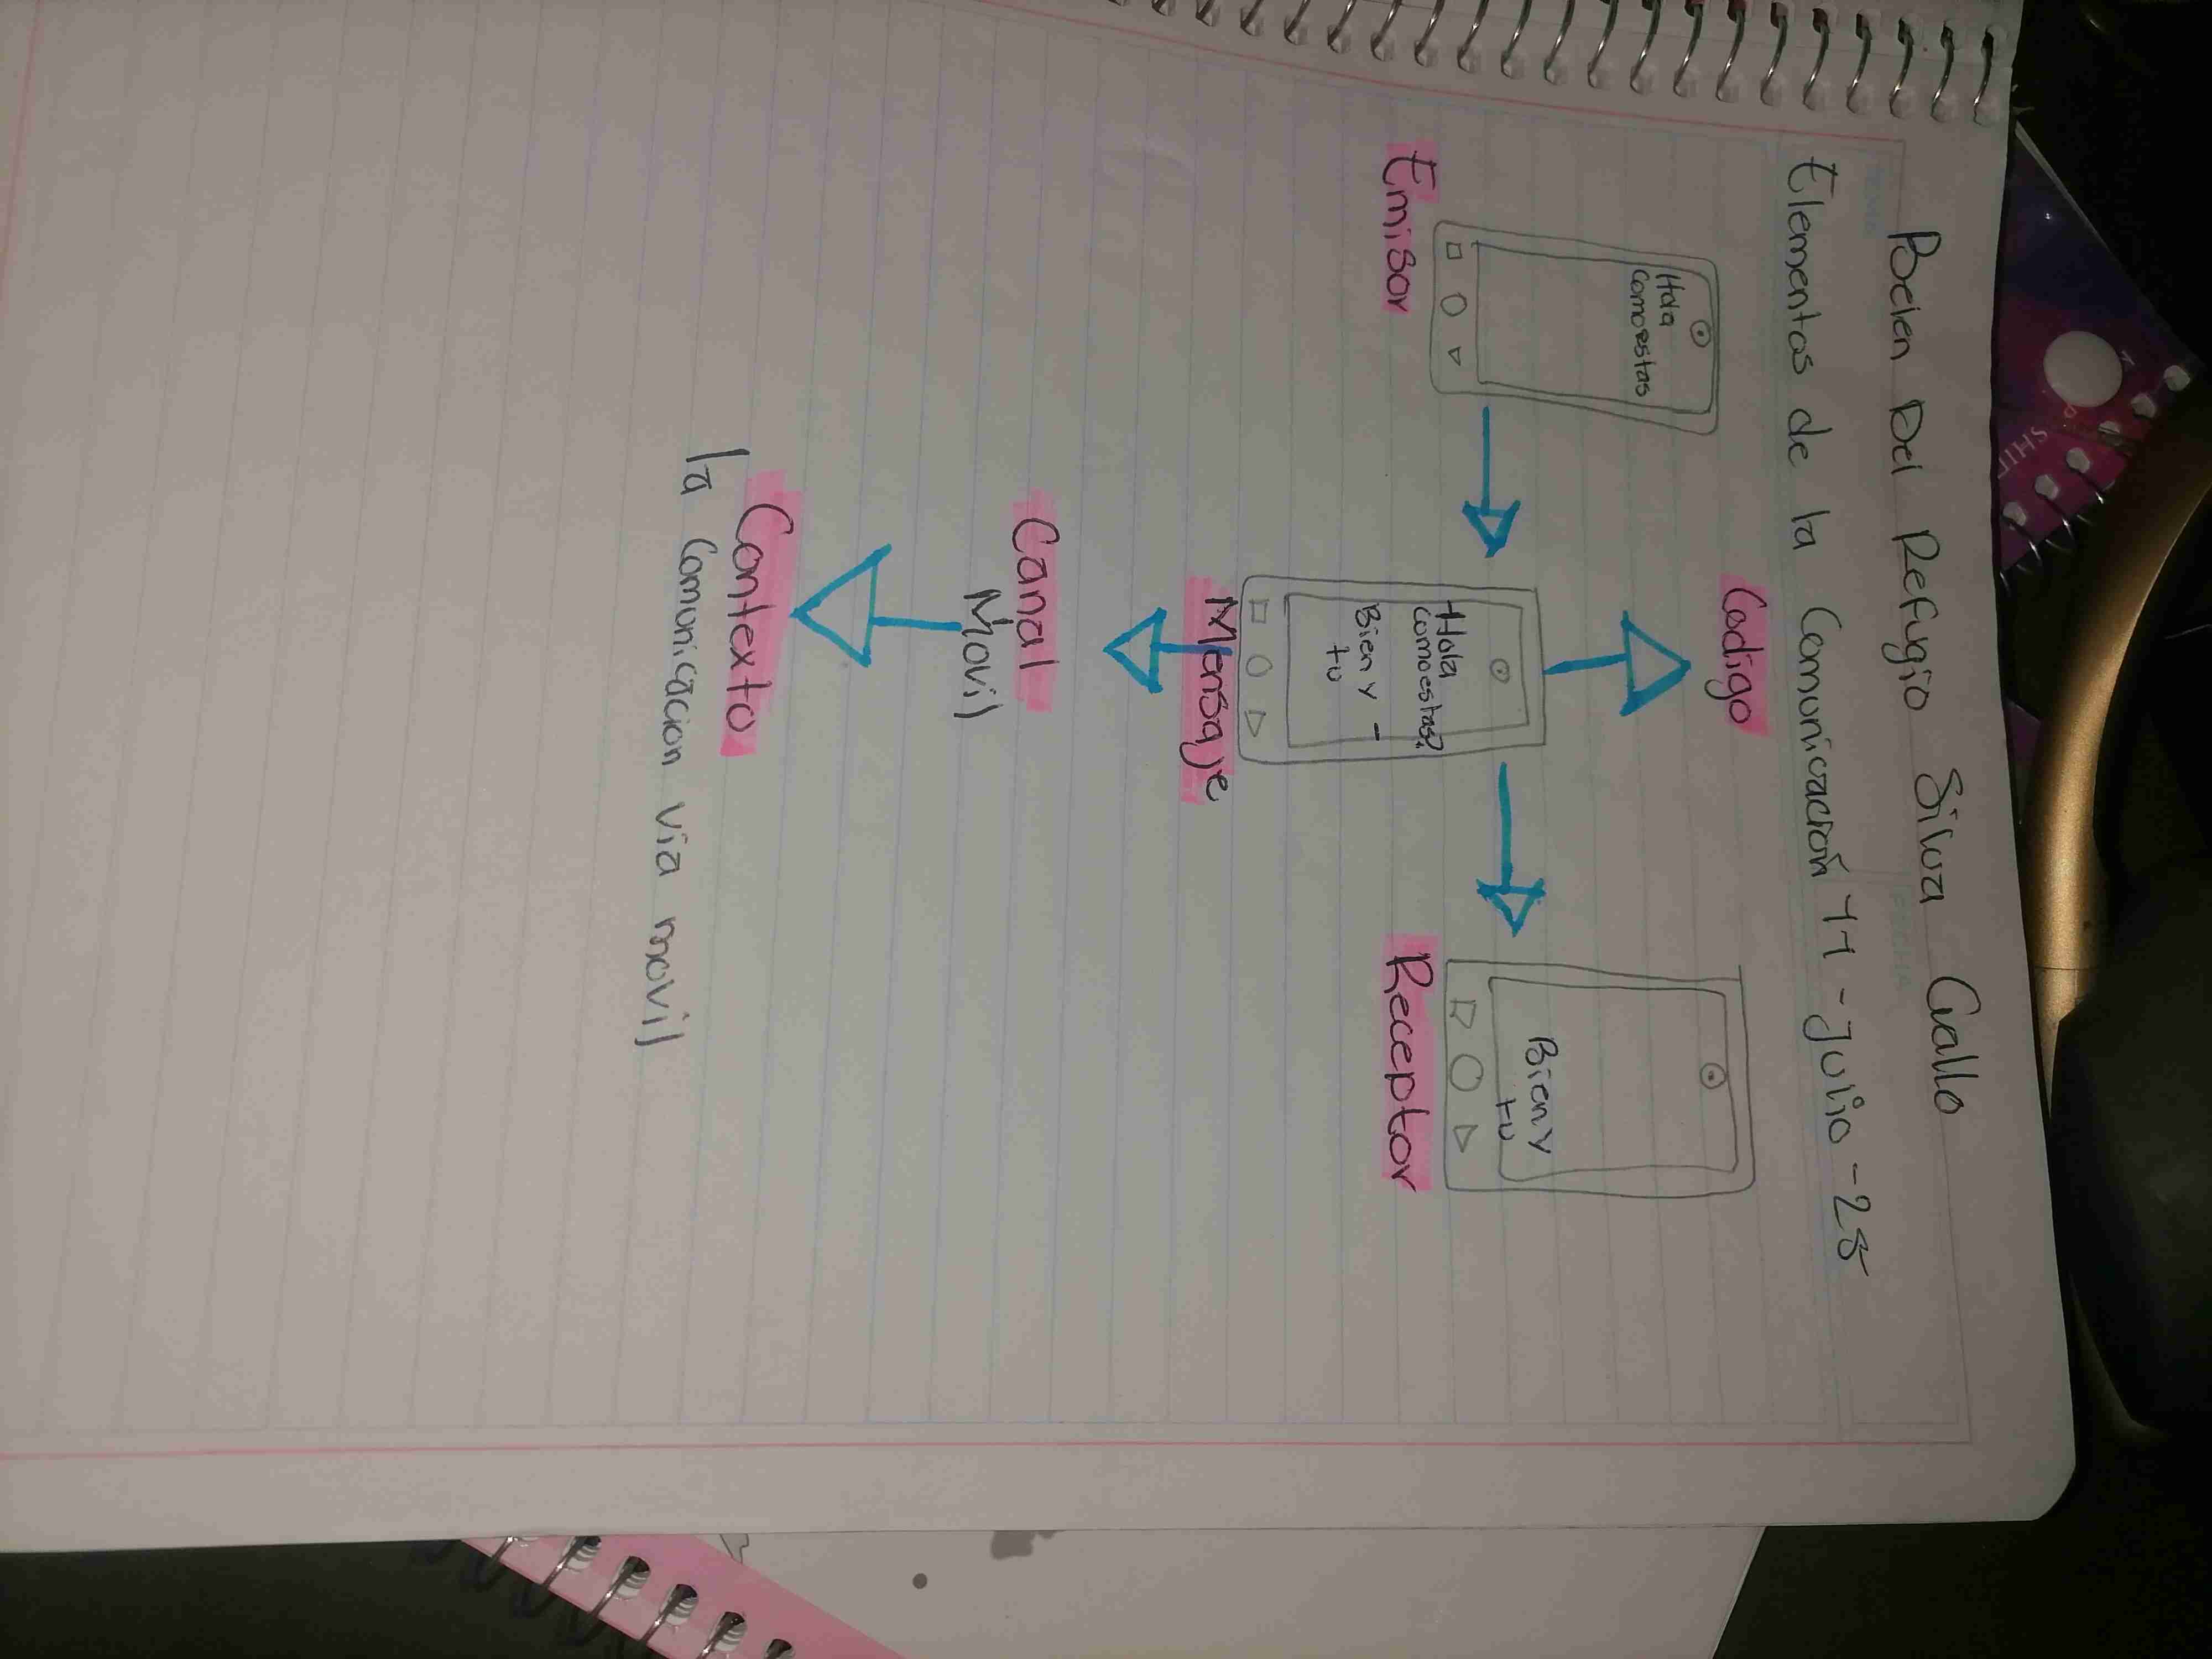 Del Refugio Silva Gallo
Elementos de la Comunicación 11 - Julio - 25
Codigo
Hola
Como estas
Emisor
Hola
Como estas?
Bien y -
tu
Mensaje
Bien y
tu
Receptor
Canal
Movil
Contexto
la Comunicacion via movil